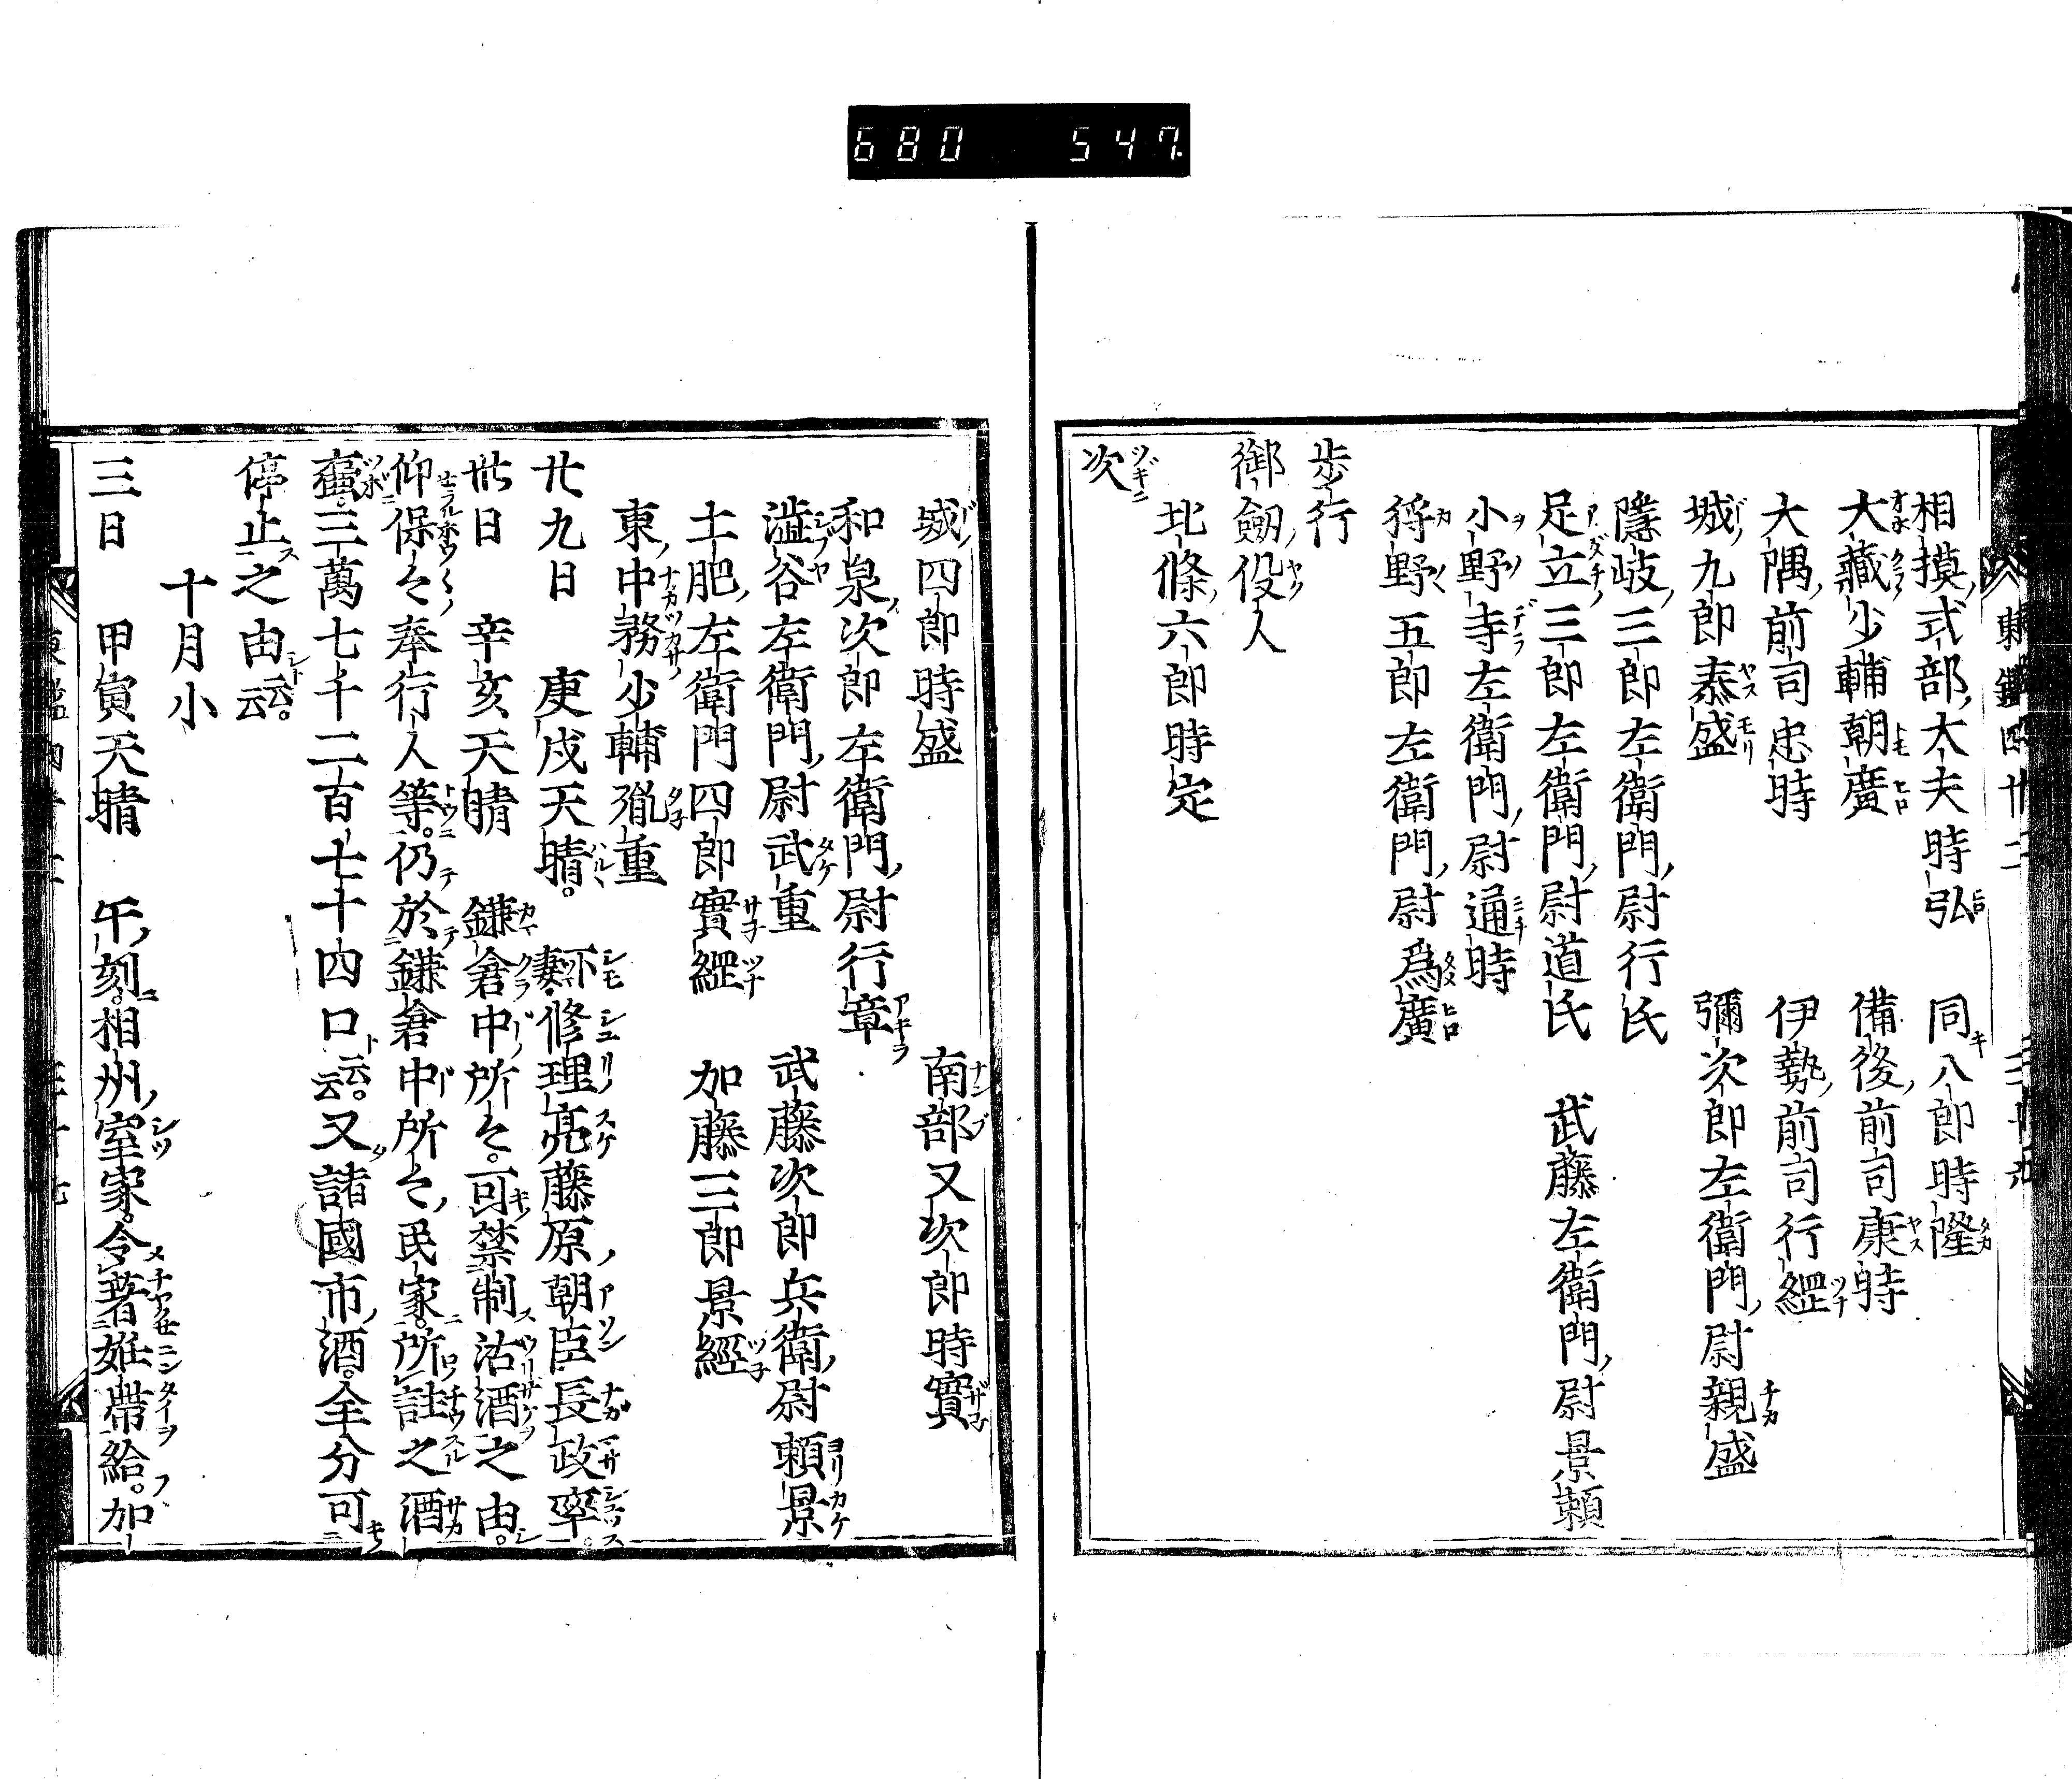 680 547.
東鑑四十二
相摸式部大夫時弘 同八郎時隆
大藏少輔朝廣 備後前司康時
大隅前司忠時 伊勢前司行經
城九郎泰盛 彌次郎左衛門尉親盛
隱岐三郎左衛門尉行氏
足立三郎左衛門尉道氏 武藤左衛門尉景頼
小野寺左衛門尉通時
狩野五郎左衛門尉爲廣
歩行
御劔役人
北條六郎時定
次
城四郎時盛 南部又次郎時實
和泉次郎左衛門尉行章
澁谷左衛門尉武重 武藤次郎兵衛尉頼景
土肥左衛門四郎實經 加藤三郎景經
東中務少輔胤重
廿九日 庚戌天晴。 下妻修理亮藤原朝臣長政卒。
卅日 辛亥天晴 鎌倉中所々。可禁制沽酒之由。
仰保々奉行人等。仍於鎌倉中所々民家。所註之酒
壷。三萬七千二百七十四口云云。又諸國市酒。全分可
停止之由云云。
十月小
三日 甲寅天晴 午刻。相州室家。令著姙帶給。加